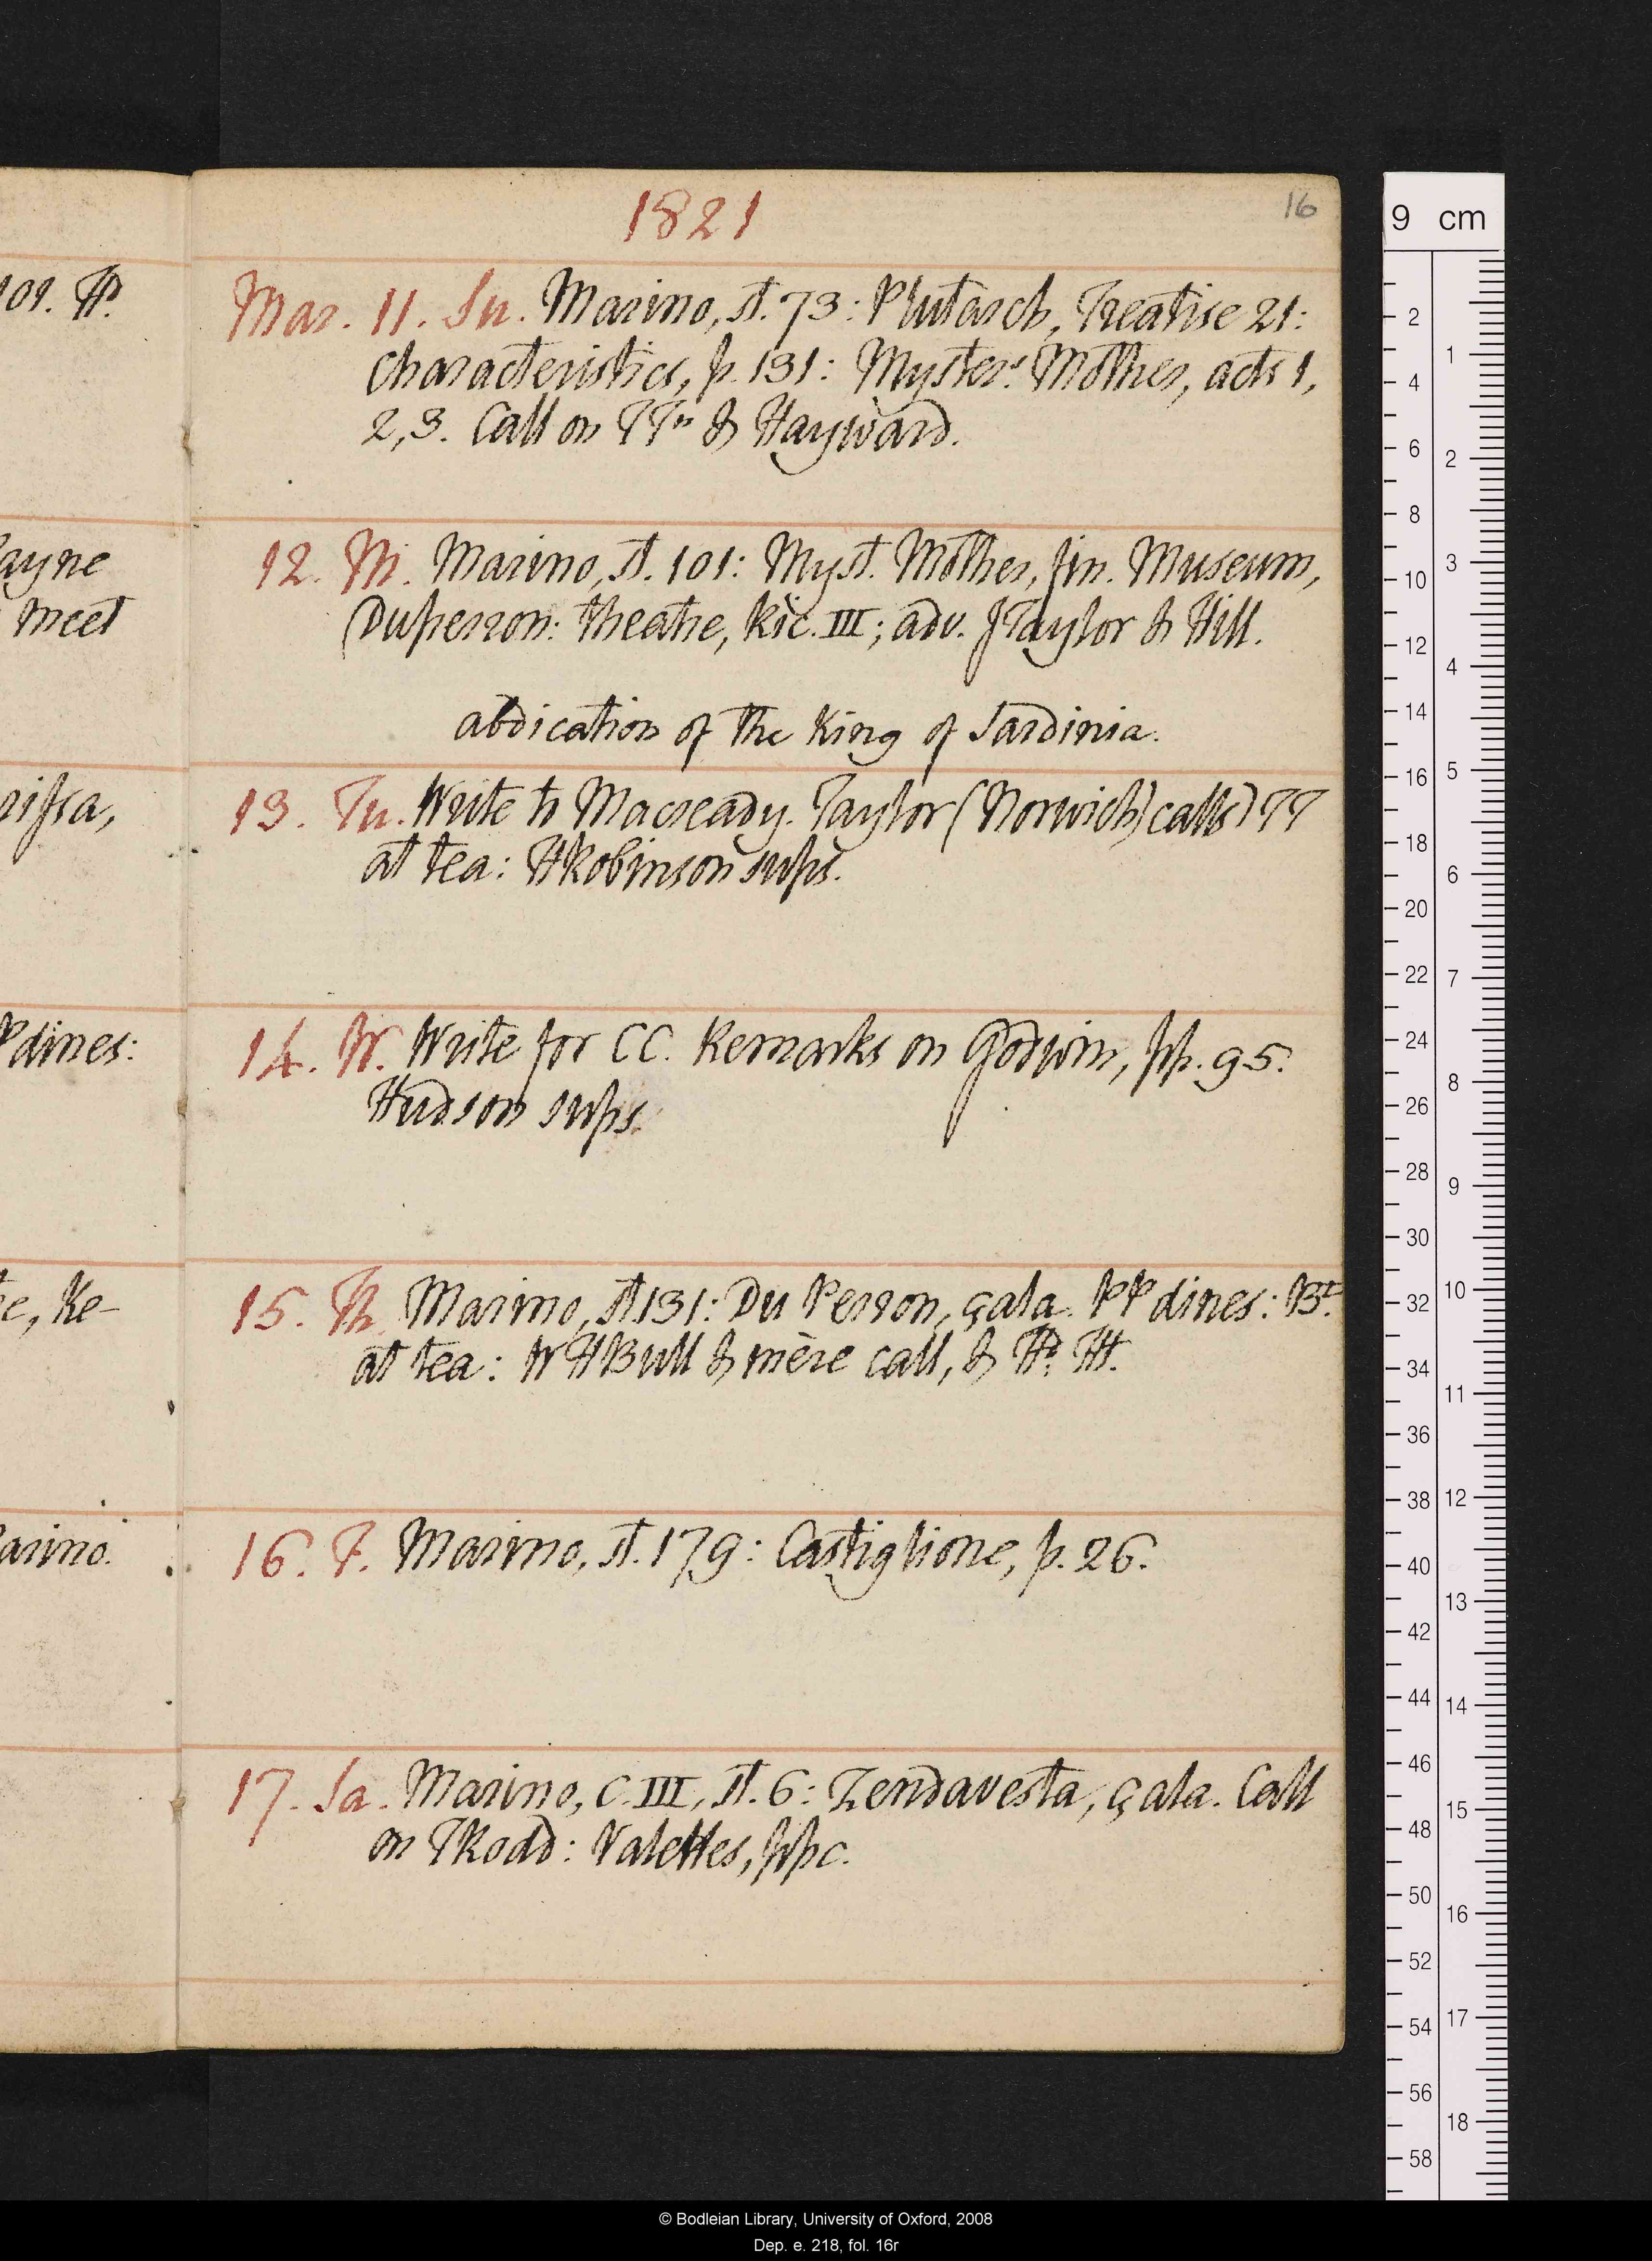 1821
16
Mar. 11. Su. Marino, st. 73: Plutarch, Treatise 21:
Characteristics, p. 131: Myster.s Mother, acts 1,
2, 3. Call on TTn & Hayward.
12. M. Marino, st. 101: Myst. Mother, fin. Museum,
Duperron: theatre, Ric. III; adv. JTaylor & Hill.
abdication of the King of Sardinia.
13. Tu. Write to Macready. Taylor (Norwich) calls) TT
at tea: HRobinson sups.
14. W. Write for CC. Remarks on Godwin, pp. 95.
Hudson sups.
15. Th. Marino, st 131: Du Perron, çala. PP dines: Bt.
at tea: WHBull & mère call, & Hd. Ht.
16. F. Marino, st. 179: Castiglione, p. 26.
17. Sa. Marino, C. III, st. 6: Zendavesta, çala. Call
on TRodd: Valettes, ppc.
101. Hd.
ayne
meet
rissa,
Pdines:
e, Re-
arino.
9 cm
2 4 6 8 10 12 14 16 18 20 22 24 26 28 30 32 34 36 38 40 42 44 46 48 50 52 54 56 58
1 2 3 4 5 6 7 8 9 10 11 12 13 14 15 16 17 18
© Bodleian Library, University of Oxford, 2008
Dep. e. 218, fol. 16r